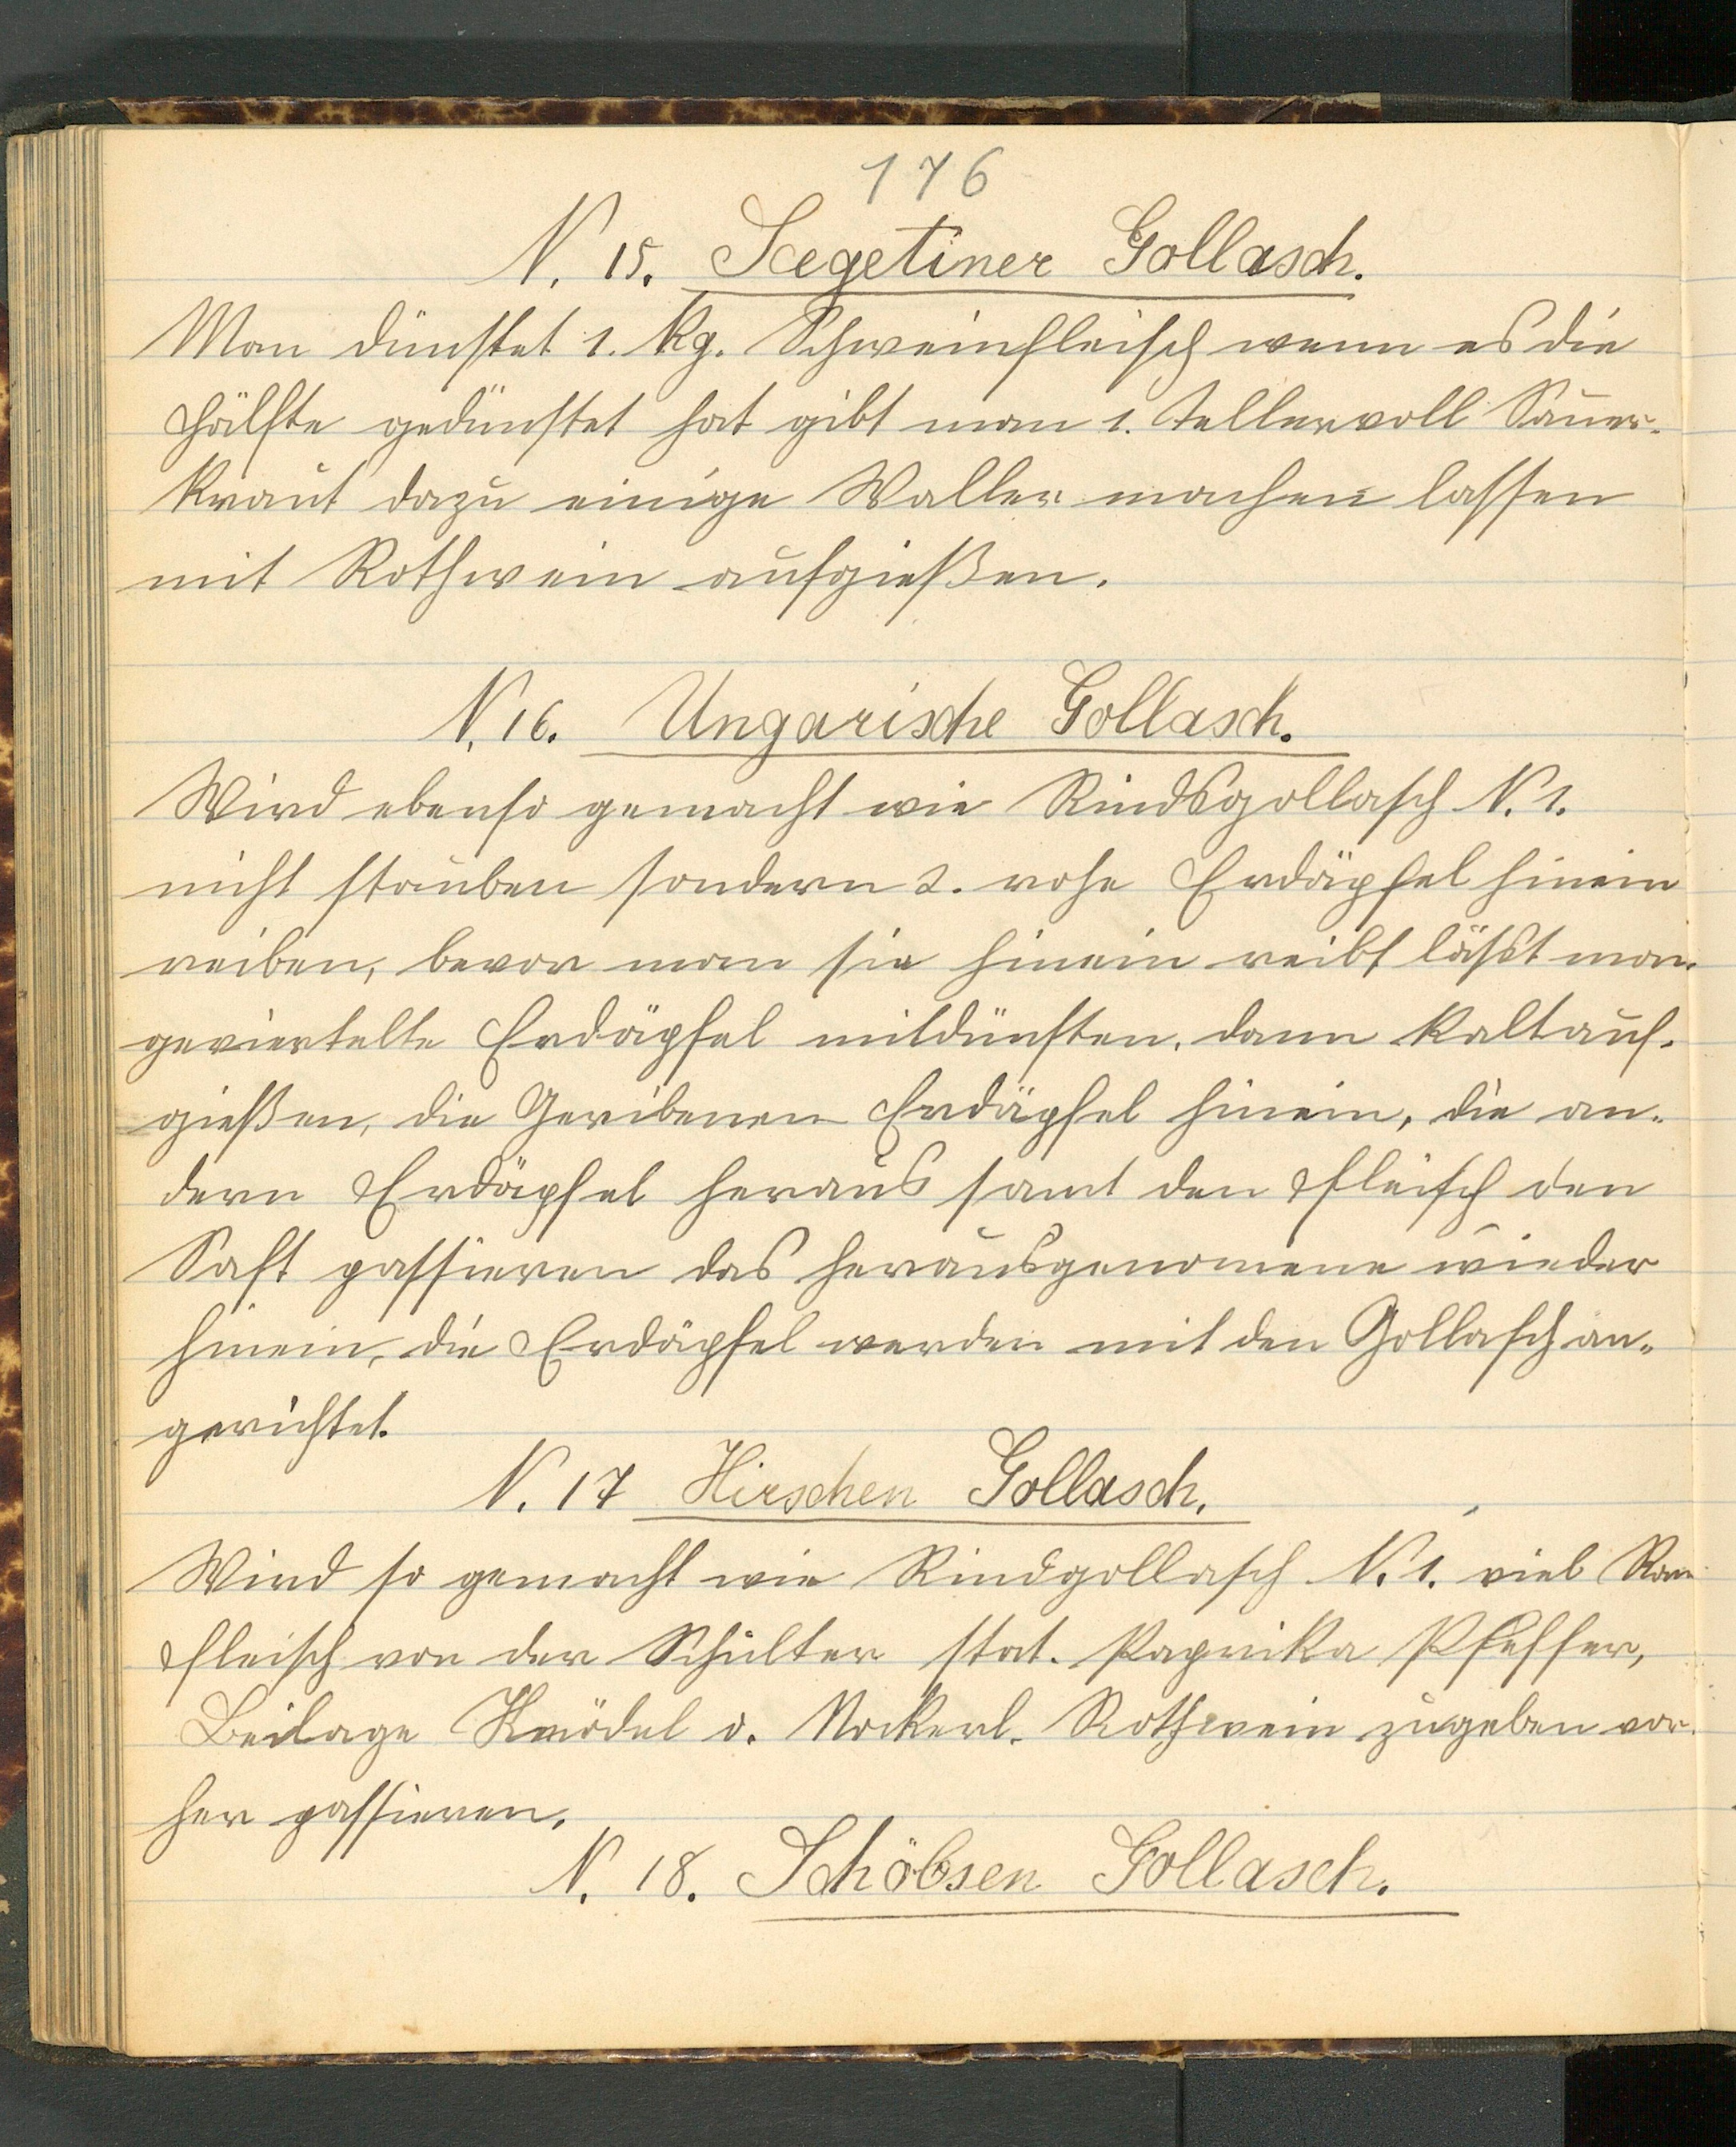 176
N. 15. Seegetiner Gollasch.
Man dünstet 1. kg. Schweinfleisch wenn es die
Hälfte gedünstet hat gibt man 1. Tellervoll Sauer-
kraut dazu einige Waller machen lassen
mit Rothwein aufgießen.
N. 16. Ungarische Gollasch.
Wird ebenso gemacht wie Rindsgollasch N. 1.
nicht stauben sondern 2. rohe Erdäpfel hinein
reiben, bevor man sie hinein reibt läßt man
geviertelte Erdäpfel mitdünsten, dann kalt auf-
gießen, die Geribenen Erdäpfel hinein, die an-
dern Erdäpfel heraus samt den Fleisch den
Saft passieren das herausgenomene wieder
hinein, die Erdäpfel werden mit den Gollasch an-
gerichtet.
N. 17 Hirschen Gollasch.
Wird so gemacht wie Rindgollasch N. 1. viel
Fleisch von der Schulter stat. Paprika Pfeffer,
Beilage Knödel o. Nockerl. Rothwein zugeben vor-
her passieren.
N. 18. Schöbsen Gollasch.